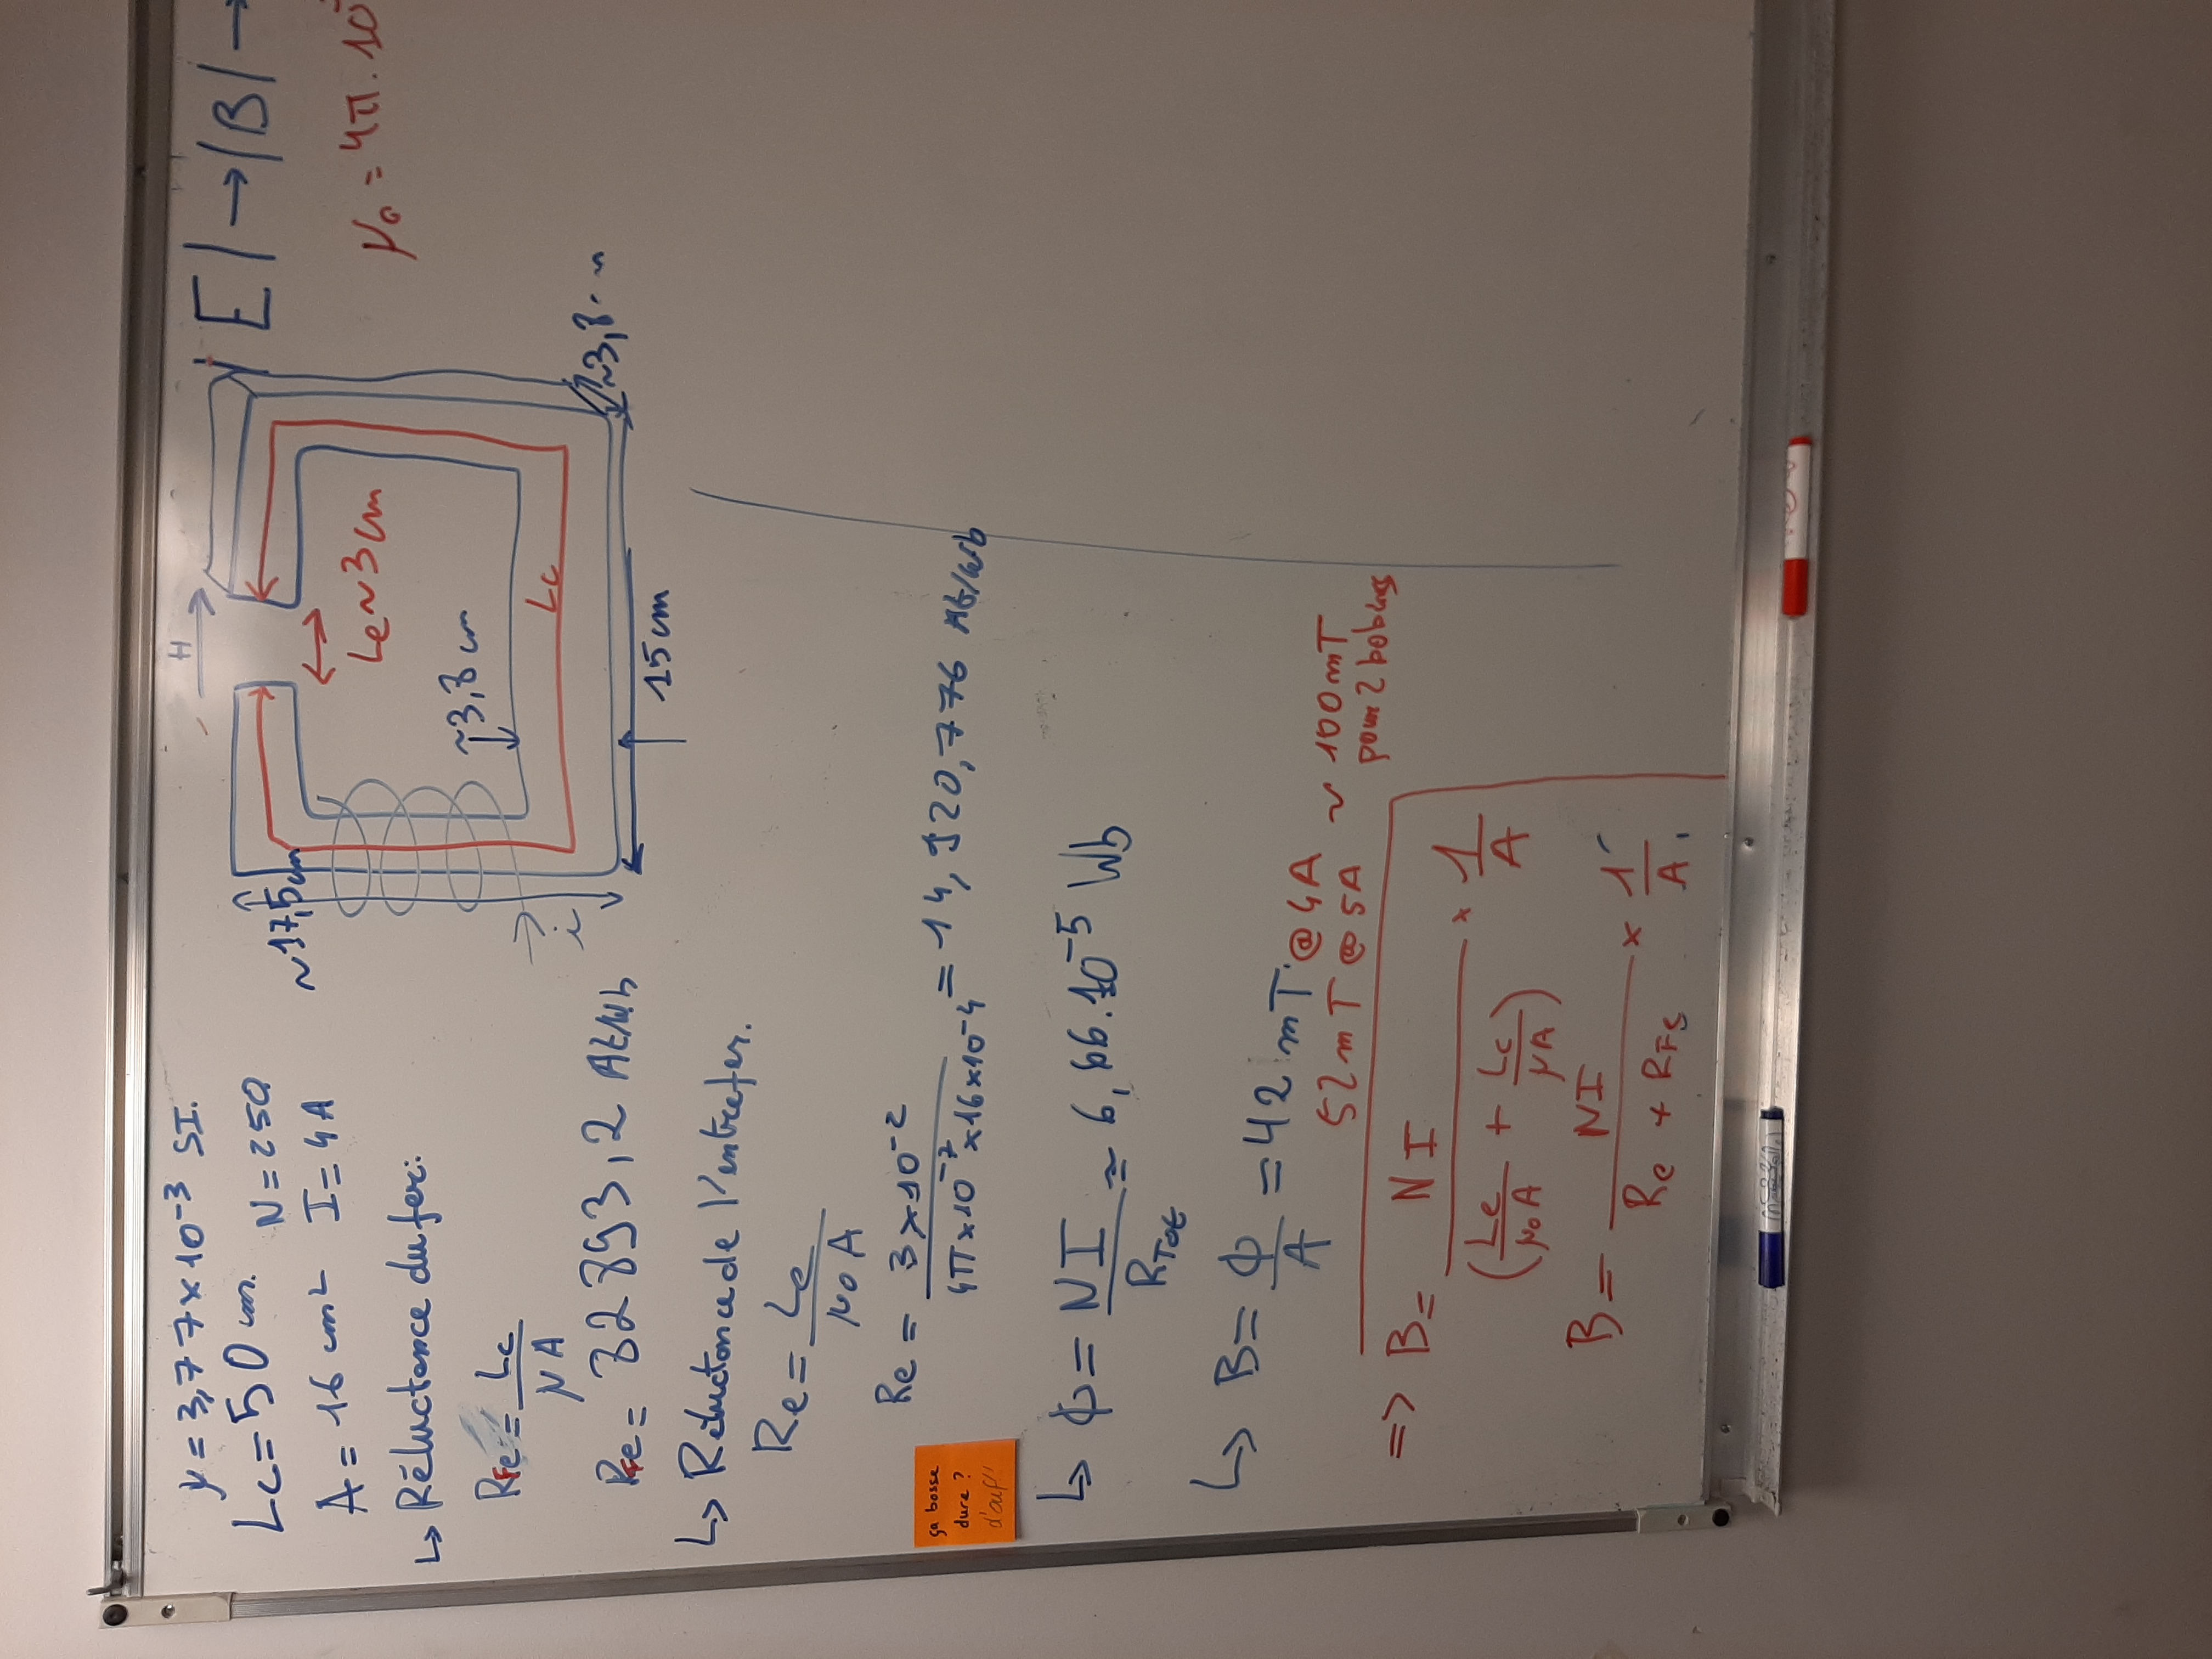 μ = 3,77 × 10⁻³ SI.
Lc = 50 cm. N = 250
A = 16 cm² I = 4A
↳ Réluctance du fer:
RFe = Lc / μA
RFe = 82893,2 At/Wb
↳ Réluctance de l'entrefer.
Re = Le / μ0 A
Re = 3 × 10⁻² / 4π × 10⁻⁷ × 16 × 10⁻⁴ = 14,920,776 At/Wb
↳ Φ = NI / RTot ≈ 6,66.10⁻⁵ Wb
↳ B = Φ / A = 42 mT. @ 4A
52 mT @ 5A ~ 100mT
pour 2 bobines
=> B = NI / (Le / μ0A + Lc / μA) × 1 / A
B = NI / Re + RFe × 1 / A
H
Le ~ 3 cm
~3,8 cm
Lc
~17,5cm
i
15cm
~3,8
|E| → |B| →
μ0 = 4π.10
ça bosse
dure?